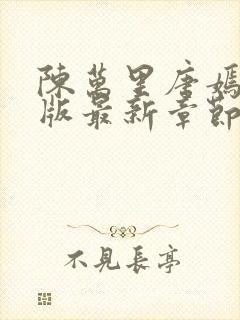 陳萬里唐嫣
版最新章節
不見長亭